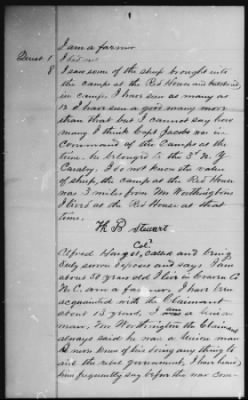 I am a farmer
Direct 1 I
8 I saw some of the sheep brought into
the camps at the Red House and butchered
in camps. I have seen as many as
12 I have seen a good many more
than that but I cannot say how
many I think Capt Jacobs was in
command of the Camps at the
time he belonged to the 3d N. Y
Cavalry. I do not know the value
of sheep, the camps at the Red House
was 3 miles from Mr Worthingtons
I lived at the Red House at that
time.
Th B Stewart
Alfred called and being
duly sworn deposes and says. I am
about 38 years old I live in Craven Co
N.C. am a farmer, I have been
acquainted with the Claimant
about 13 years. I am a Union
man, Mr Worthington the Claimant
always said he was a Union man
I never knew of his doing any thing to
aid the rebel government, I have heard
him frequently say before the war com-